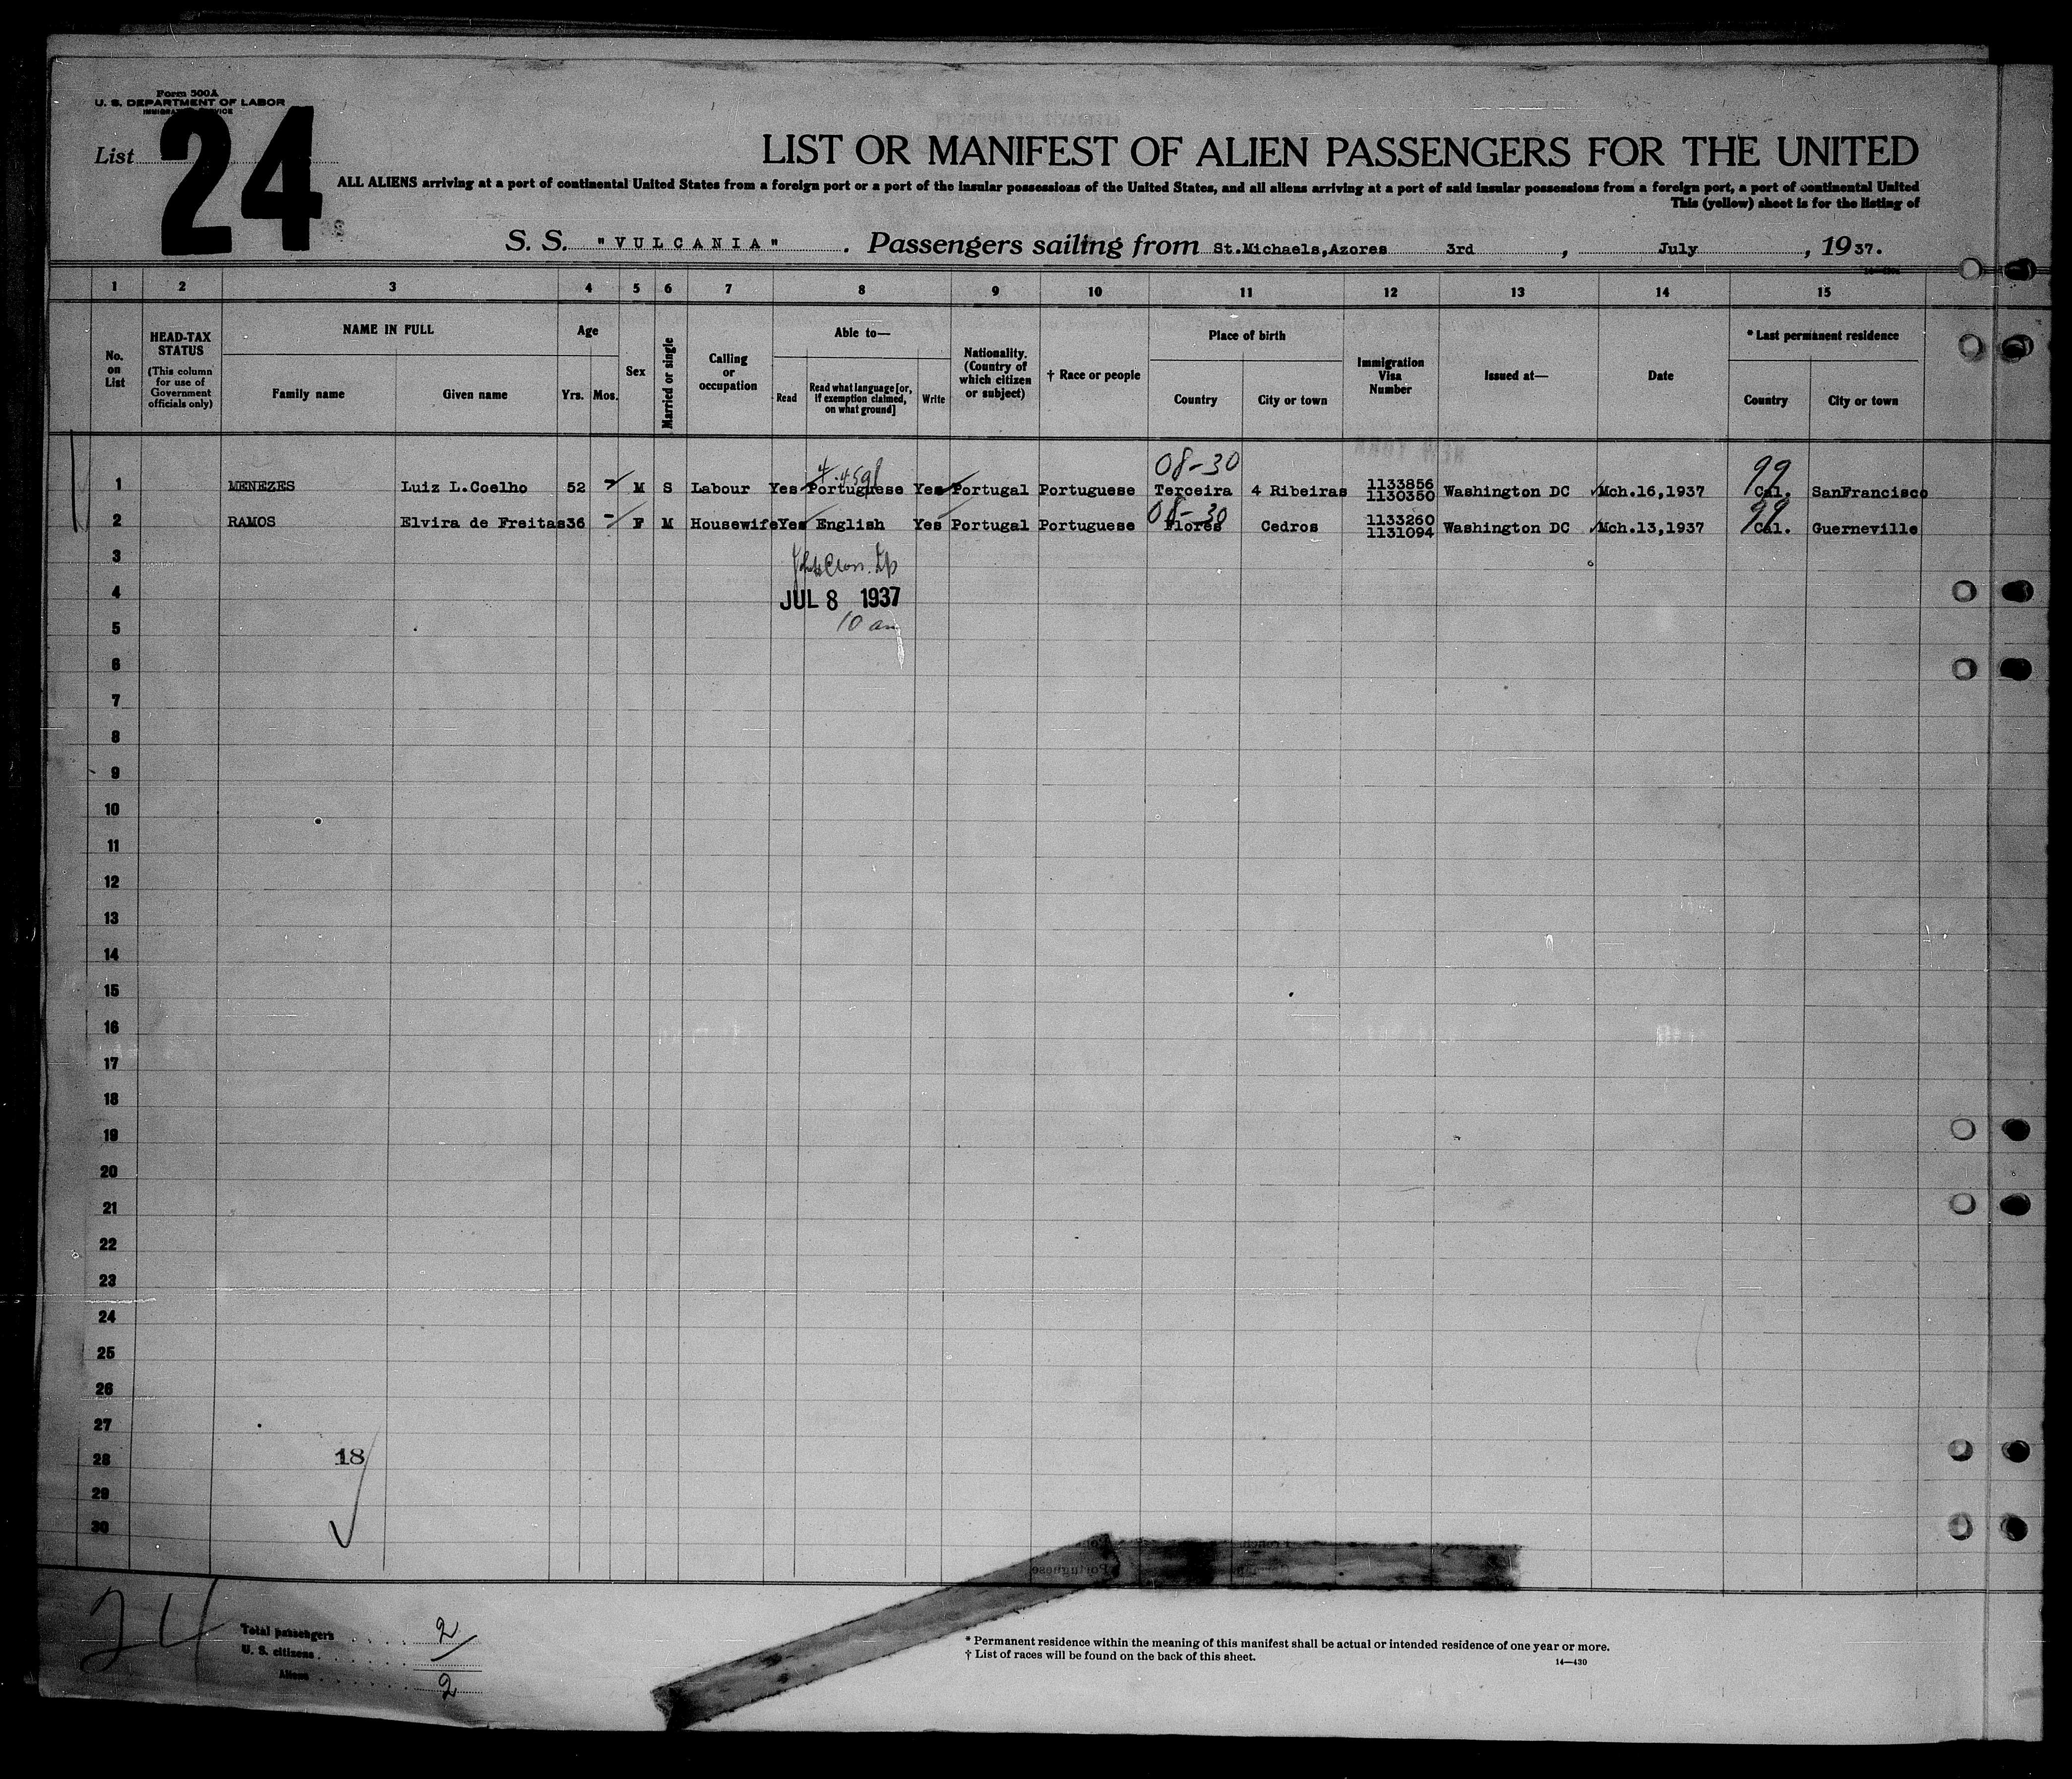 Form 500A
U. S. DEPARTMENT OF LABOR
IMMIGRATION SERVICE
List 24
LIST OR MANIFEST OF ALIEN PASSENGERS FOR THE UNITED
ALL ALIENS arriving at a port of continental United States from a foreign port or a port of the insular possessions of the United States, and all aliens arriving at a port of said insular possessions from a foreign port, a port of continental United
This (yellow) sheet is for the listing of
S. S. "VULCANIA" . Passengers sailing from St.Michaels,Azores 3rd , July , 1937.
1 2 3 4 5 6 7 8 9 10 11 12 13 14 15
No. on List
HEAD-TAX STATUS (This column for use of Government officials only)
NAME IN FULL
Family name Given name
Age
Yrs. Mos.
Sex
Married or single
Calling or occupation
Able to—
Read Read what language [or, if exemption claimed, on what ground] Write
Nationality. (Country of which citizen or subject)
† Race or people
Place of birth
Country City or town
Immigration Visa Number
Issued at—
Date
* Last permanent residence
Country City or town
08-30 99
1 MENEZES Luiz L.Coelho 52 - M S Labour Yes Portuguese Yes Portugal Portuguese Terceira 4 Ribeiras 1133856 1130350 Washington DC Mch.16,1937 Cal. SanFrancisco
08-30 99
2 RAMOS Elvira de Freitas 36 - F M Housewife Yes English Yes Portugal Portuguese Flores Cedros 1133260 1131094 Washington DC Mch.13,1937 Cal. Guerneville
3
4 JUL 8 1937
5 10 am
6
7
8
9
10
11
12
13
14
15
16
17
18
19
20
21
22
23
24
25
26
27
28 18
29
30
Portuguese
24
Total passengers 2
U. S. citizens
Aliens 2
* Permanent residence within the meaning of this manifest shall be actual or intended residence of one year or more.
† List of races will be found on the back of this sheet.
14—430